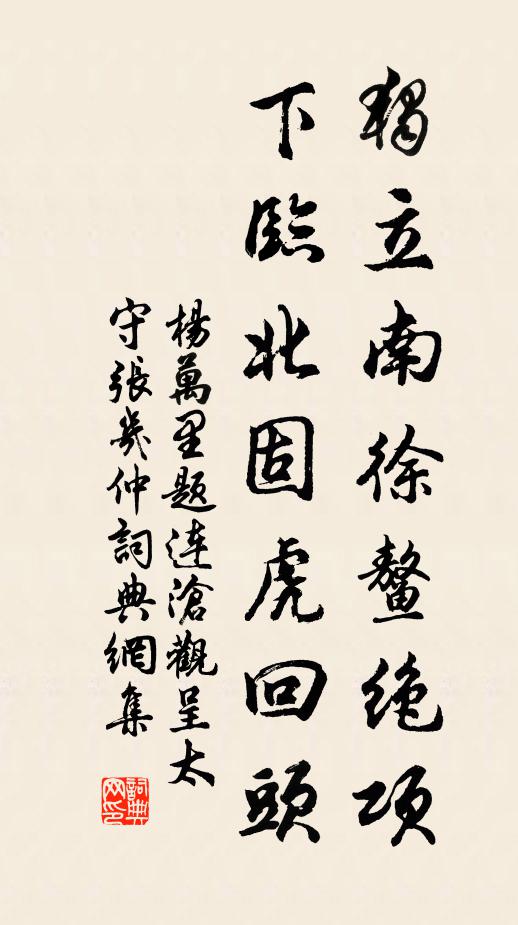 獨立南徐鼇绝項
下臨北固虎回頭
楊萬里题连滄觀呈太
守張幾仲詞典網集
詞典网印